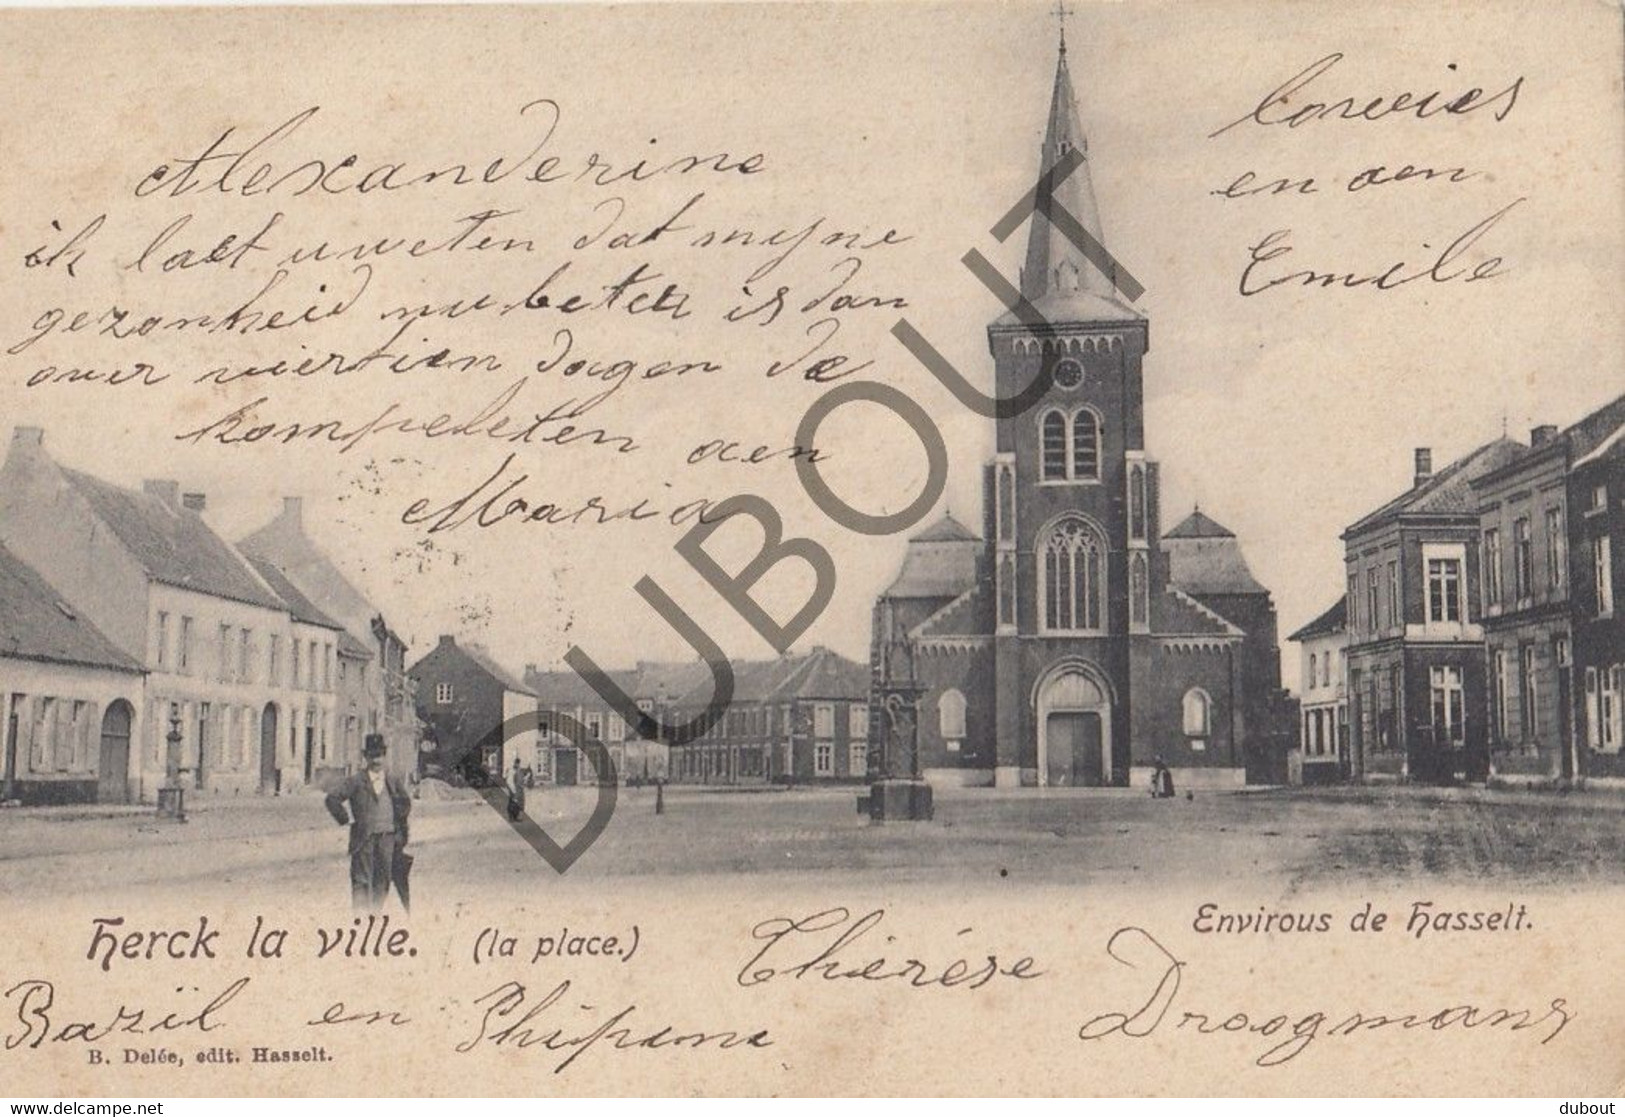 Alexanderine
ik laet u weten dat mijne
gezonheid nu beter is dan
over viertien dagen de
kompeleten aen
Maria
en aen
Emile
DUBOUT
Herck la ville. (la place.)
Envirous de Hasselt.
Thérése
Droogmans
Bazïl en Phipine
B. Delée, edit. Hasselt.
delcampe.net
dubout